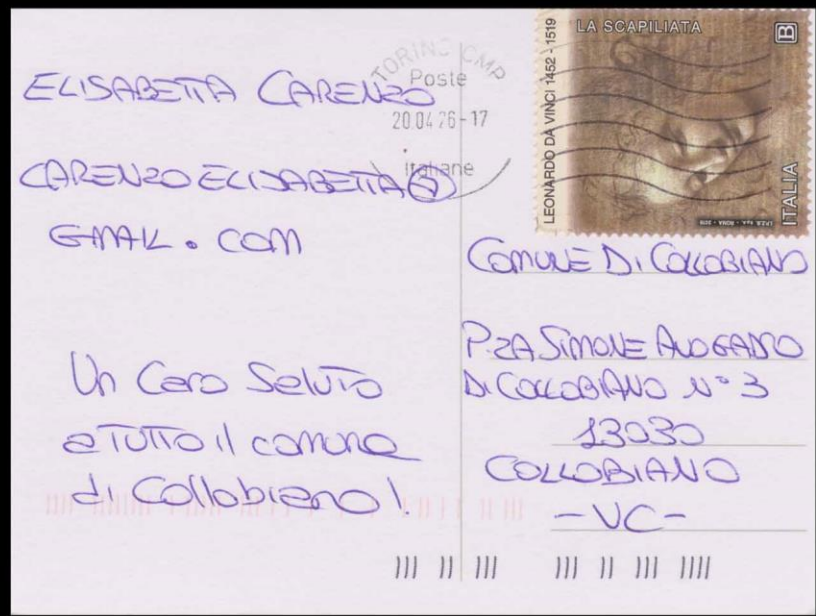 ELISABETTA CARENZO
CARENZOELISABETTA@
GMAIL. COM
Un Caro Saluto
a TUTTO il comune
di Collobiano!
TORINO CMP
Poste
20.04.26-17
Italiane
LA SCAPILIATA
B
LEONARDO DA VINCI 1452 - 1519
ITALIA
COMUNE DI COLLOBIANO
P.ZA SIMONE AVOGADRO
DI COLLOBIANO N° 3
13030
COLLOBIANO
-VC-